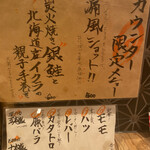 カウンター
限定メニュー
痛風ショット!!
炭火焼き銀鮭と
北海道産イクラの
親子手巻き
モモ
ハツ
レバー
カタトロ
豚バラ